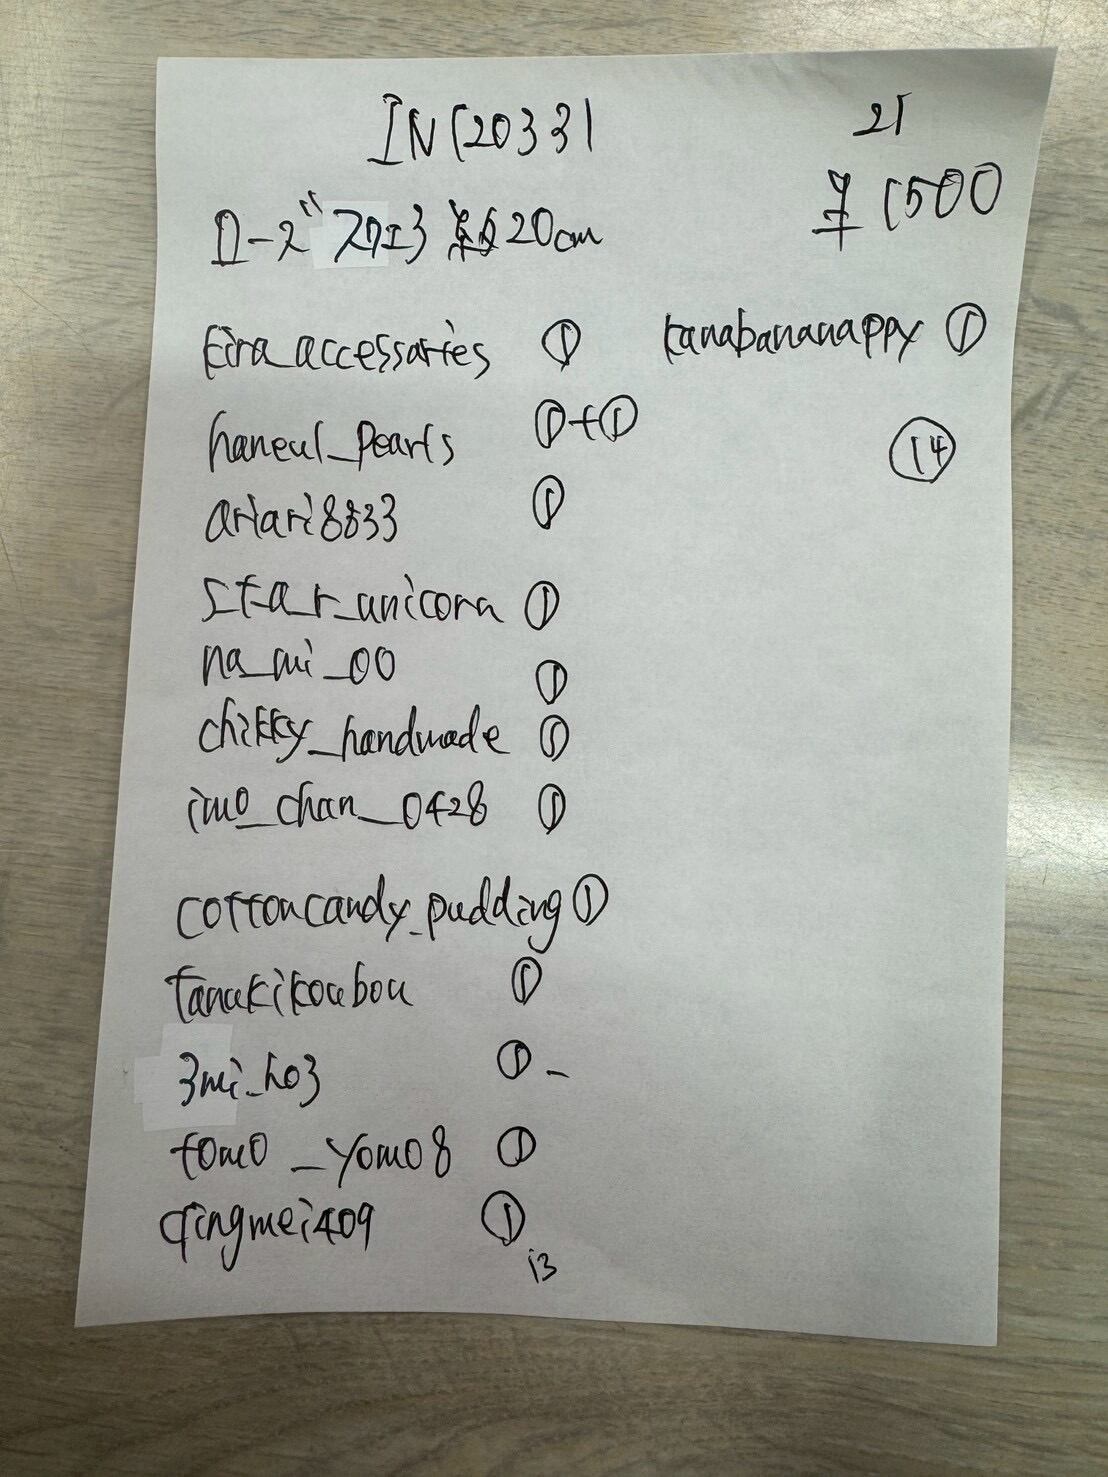 IN120331
21
ローズ スクエア 約20cm
¥1500
kira_accessaries ①
haneul_pearls ①+①
ariari8833 ①
star_unicorn ①
na_mi_00 ①
chikky_handmade ①
imo_chan_0428 ①
cottoncandy_pudding ①
tanukikoubou ①
3mi_ho3 ① -
tomo_yomo8 ①
qingmei409 ①
13
kanabananappy ①
⑭